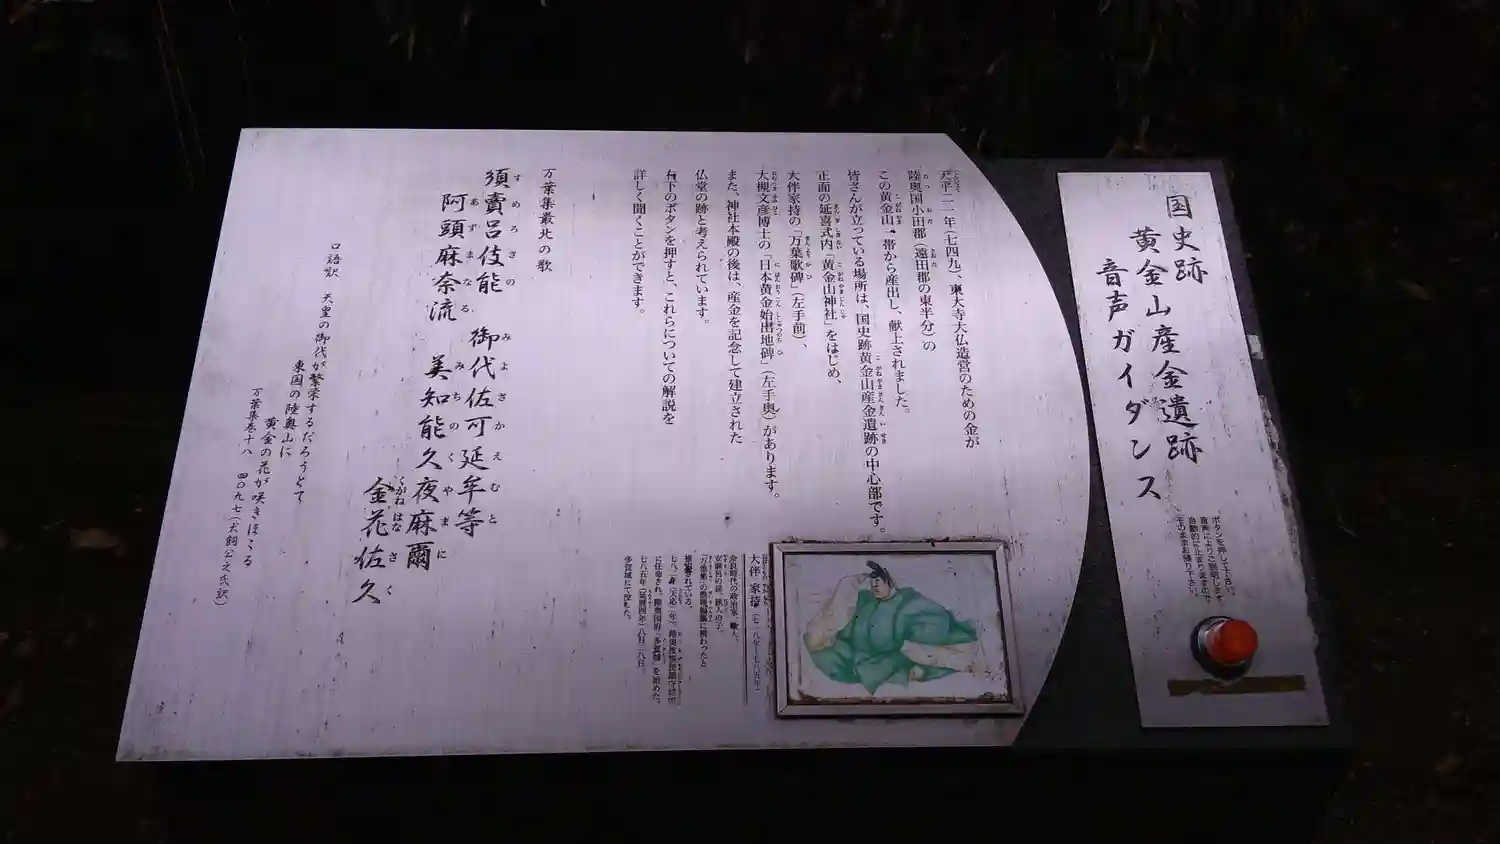 国史跡
黄金山産金遺跡
音声ガイダンス
ボタンを押して下さい。
音声によりご説明します
自動的に止まりますので
そのままお待ち下さい。
天平二一年（七四九）、東大寺大仏造営のための金が
陸奥国小田郡（遠田郡の東半分）の
この黄金山一帯から産出し、献上されました。
皆さんが立っている場所は、国史跡黄金山産金遺跡の中心部です。
正面の延喜式内「黄金山神社」をはじめ、
大伴家持の「万葉歌碑」（左手前）、
大槻文彦博士の「日本黄金始出地碑」（左手奥）があります。
また、神社本殿の後は、産金を記念して建立された
仏堂の跡と考えられています。
右下のボタンを押すと、これらについての解説を
詳しく聞くことができます。
大伴 家持（七一八年〜七八五年）
奈良時代の政治家、歌人。
安麻呂の孫、旅人の子。
「万葉集」の
に携わったと
れている。
七八二年（天応二年）
に任命され、陸奥国府「多賀城」を治めた。
七八五年（延暦四年）八月二八日、
多賀城にて没した。
万葉集最北の歌
須賣呂伎能 御代佐可延牟等
すめろきの みよさかえむと
阿頭麻奈流 美知能久夜麻爾
あずまなる みちのくやまに
金花佐久
くがねはなさく
口語訳 天皇の御代が繁栄するだろうとて
東国の陸奥山に
黄金の花が咲きほこる
万葉集巻十八 四〇九七（犬飼公之氏訳）